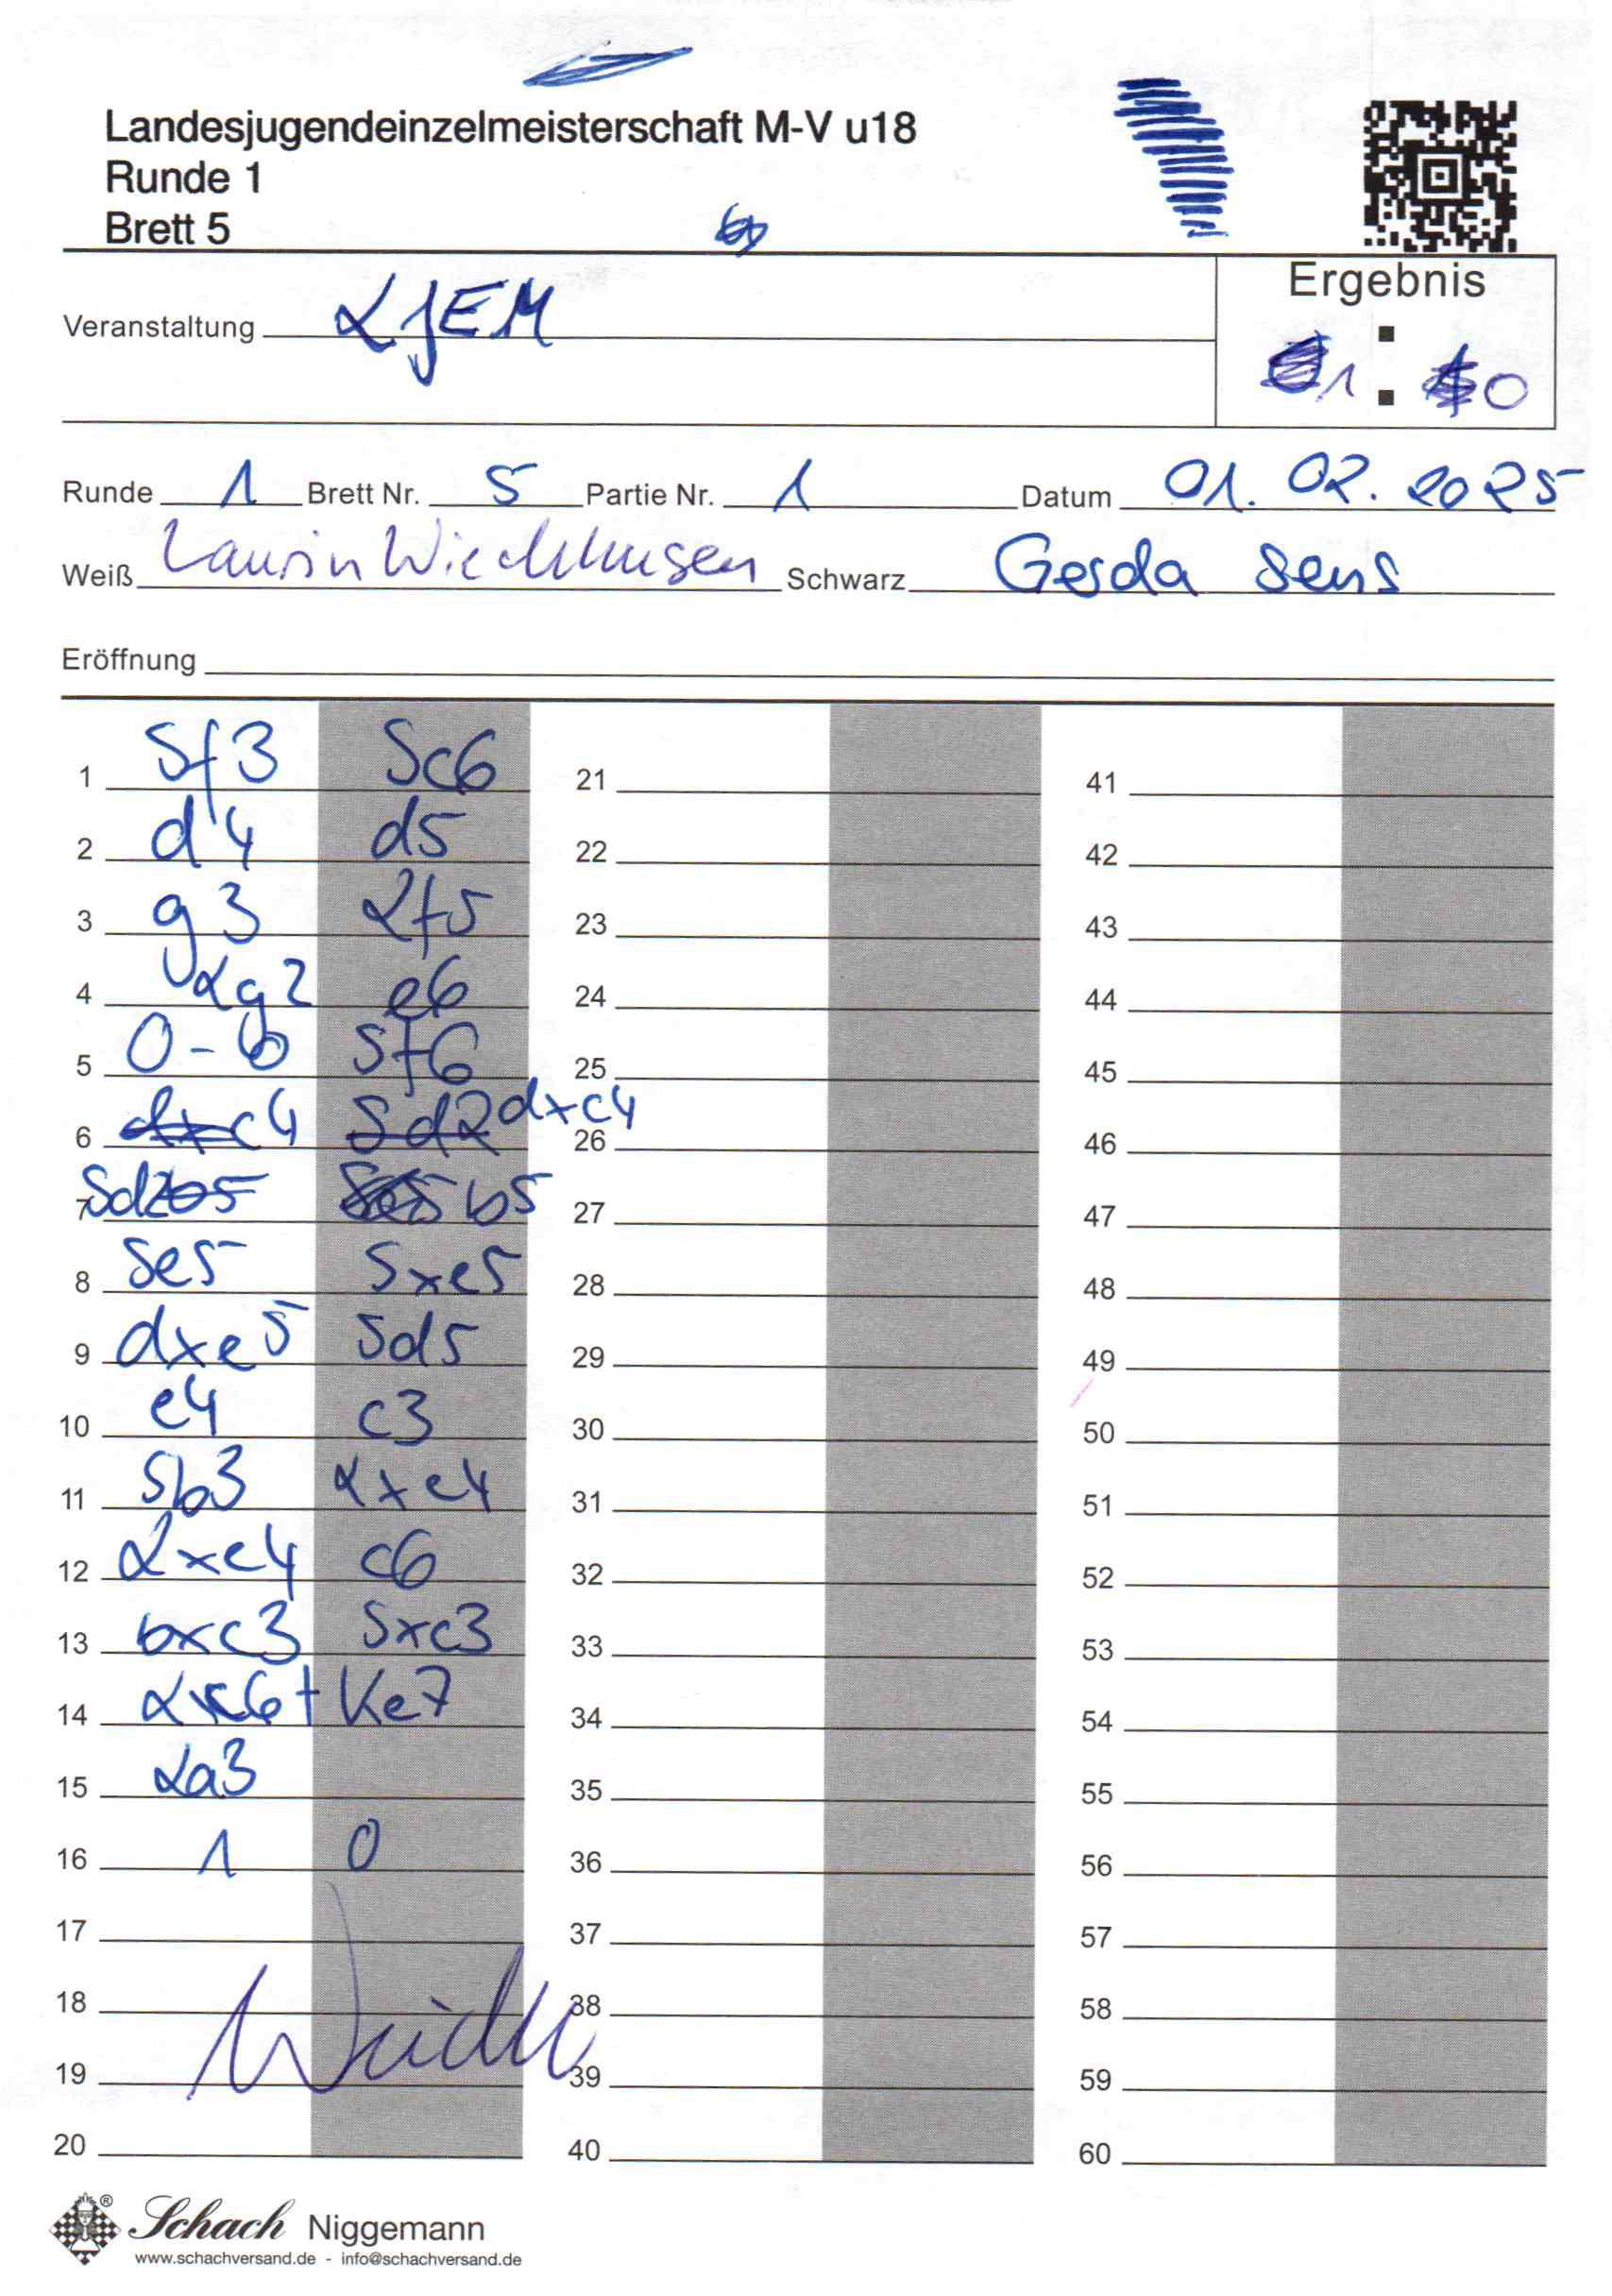 Landesjugendeinzelmeisterschaft M-V u18
Runde 1
Brett 5
Ergebnis
Veranstaltung LJEM
1 : 0
Runde 1 Brett Nr. 5 Partie Nr. 1 Datum 01.02.2025
Weiß Laurin Schwarz Gerda Sens
Eröffnung
1 Sf3 Sc6 21 41
2 d4 d5 22 42
3 g3 Lf5 23 43
4 Lg2 e6 24 44
5 0-0 Sf6 25 45
6 c4 dxc4 26 46
7 Sd2 b5 27 47
8 Se5 Sxe5 28 48
9 dxe5 Sd5 29 49
10 e4 c3 30 50
11 Sb3 Lxe4 31 51
12 Lxe4 c6 32 52
13 bxc3 Sxc3 33 53
14 Lxc6+ Ke7 34 54
15 La3 35 55
16 1 0 36 56
17 37 57
18 38 58
19 39 59
20 40 60
Schach Niggemann
www.schachversand.de - info@schachversand.de